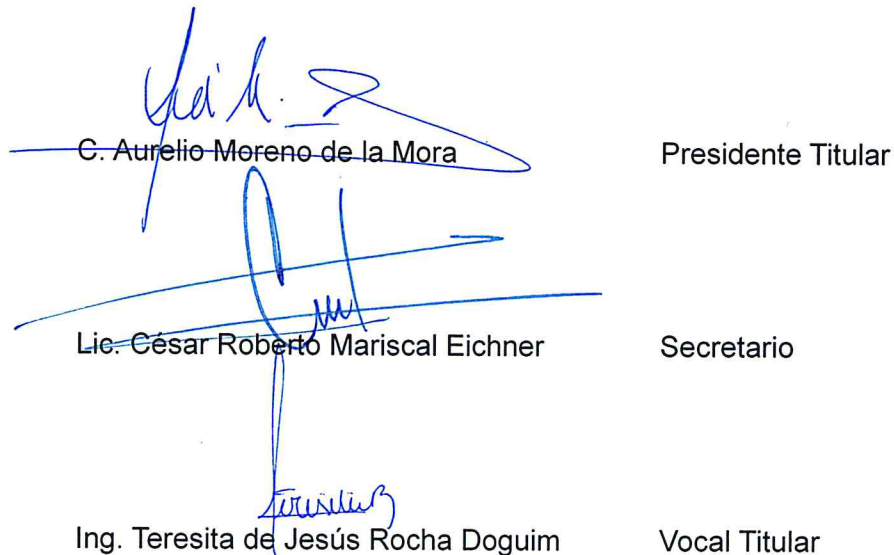 C. Aurelio Moreno de la Mora Presidente Titular
Lic. César Roberto Mariscal Eichner Secretario
Ing. Teresita de Jesús Rocha Doguim Vocal Titular